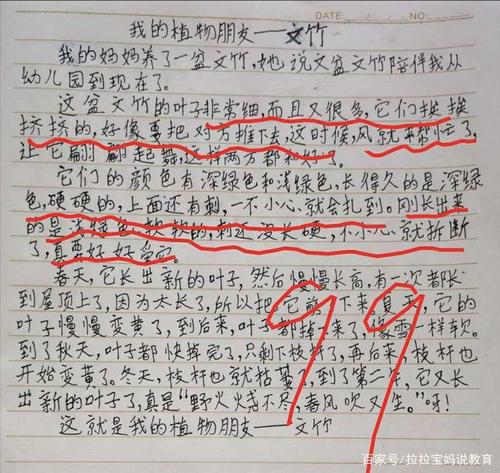 DATE: / /
我的植物朋友——文竹
我的妈妈养了一盆文竹,她说文盆文竹陪伴我从
幼儿园到现在了。
这盆文竹的叶子非常细而且又很多,它们挨挨
挤挤的,好像要把对方推下去,这时候,风就来帮忙了,
让它翩翩起舞,这样两方都和好了。
它们的颜色有深绿色和浅绿色,长得久的是深绿
色,硬硬的,上面还有刺,一不小心就会扎到。刚长出来
的是浅绿色,软软的,刺还没长硬,不小心就折断
了,真要好好爱它。
春天,它长出新的叶子,然后慢慢长高,有一次都长
到屋顶上了,因为太长了,所以把它剪下来。夏天,它的
叶子慢慢变黄了,到后来,叶子都掉下来了,像雪一样软。
到了秋天,叶子都快掉完了,只剩下枝杆了,再后来,枝杆也
开始变黄了。冬天,枝杆也就枯萎了,到了第二年,它又长
出新的叶子了,真是“野火烧不尽,春风吹又生。”呀!
这就是我的植物朋友——文竹
99
百家号/拉拉宝妈说教育